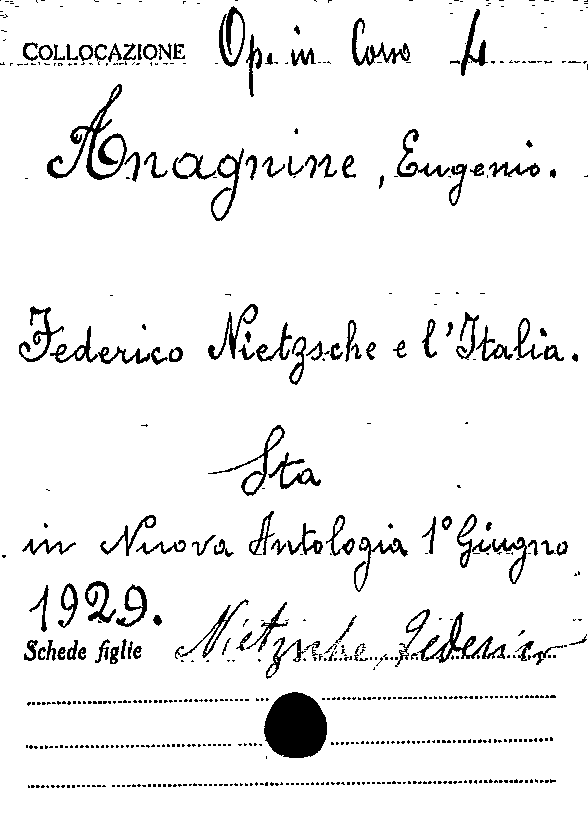 COLLOCAZIONE Op. in Corso 4
Anagnine, Eugenio.
Federico Nietzsche e l'Italia.
Sta
in Nuova Antologia 1° Giugno
1929.
Schede figlie Nietzsche, Federico